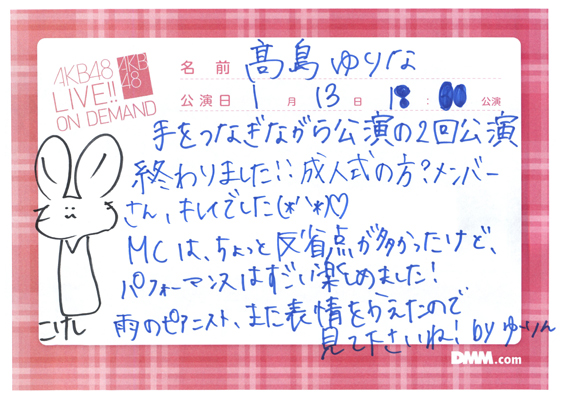 AKB48
LIVE!!
ON DEMAND
AKB
48
名前 髙島ゆりな
公演日 1月13日 18:00 公演
手をつなぎながら公演の2回公演
終わりました!! 成人式の方?メンバー
さん、キレイでした(*'^'*)♡
MCは、ちょっと反省点が多かったけど、
パフォーマンスはすごい楽しめました!
雨のピアニスト、また表情をかえたので
見て下さいね! by ゆーりん
こけし
DMM.com